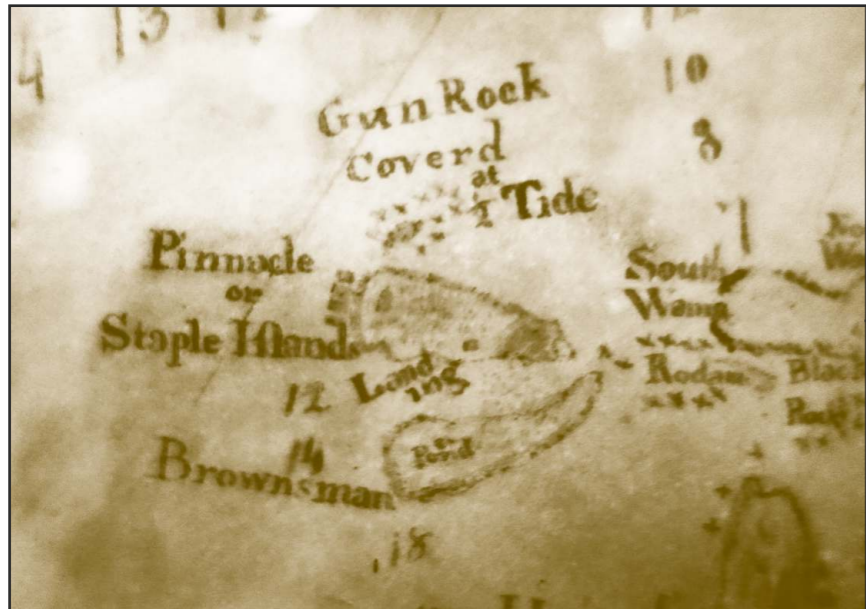 14
13
10
8
Gun Rock
Coverd
at
½ Tide
Pinnacle
or
Staple Iſlands
South
Wam
Landing
12
14
Brownsman
a Pond
18
Rodan
Black
Rock